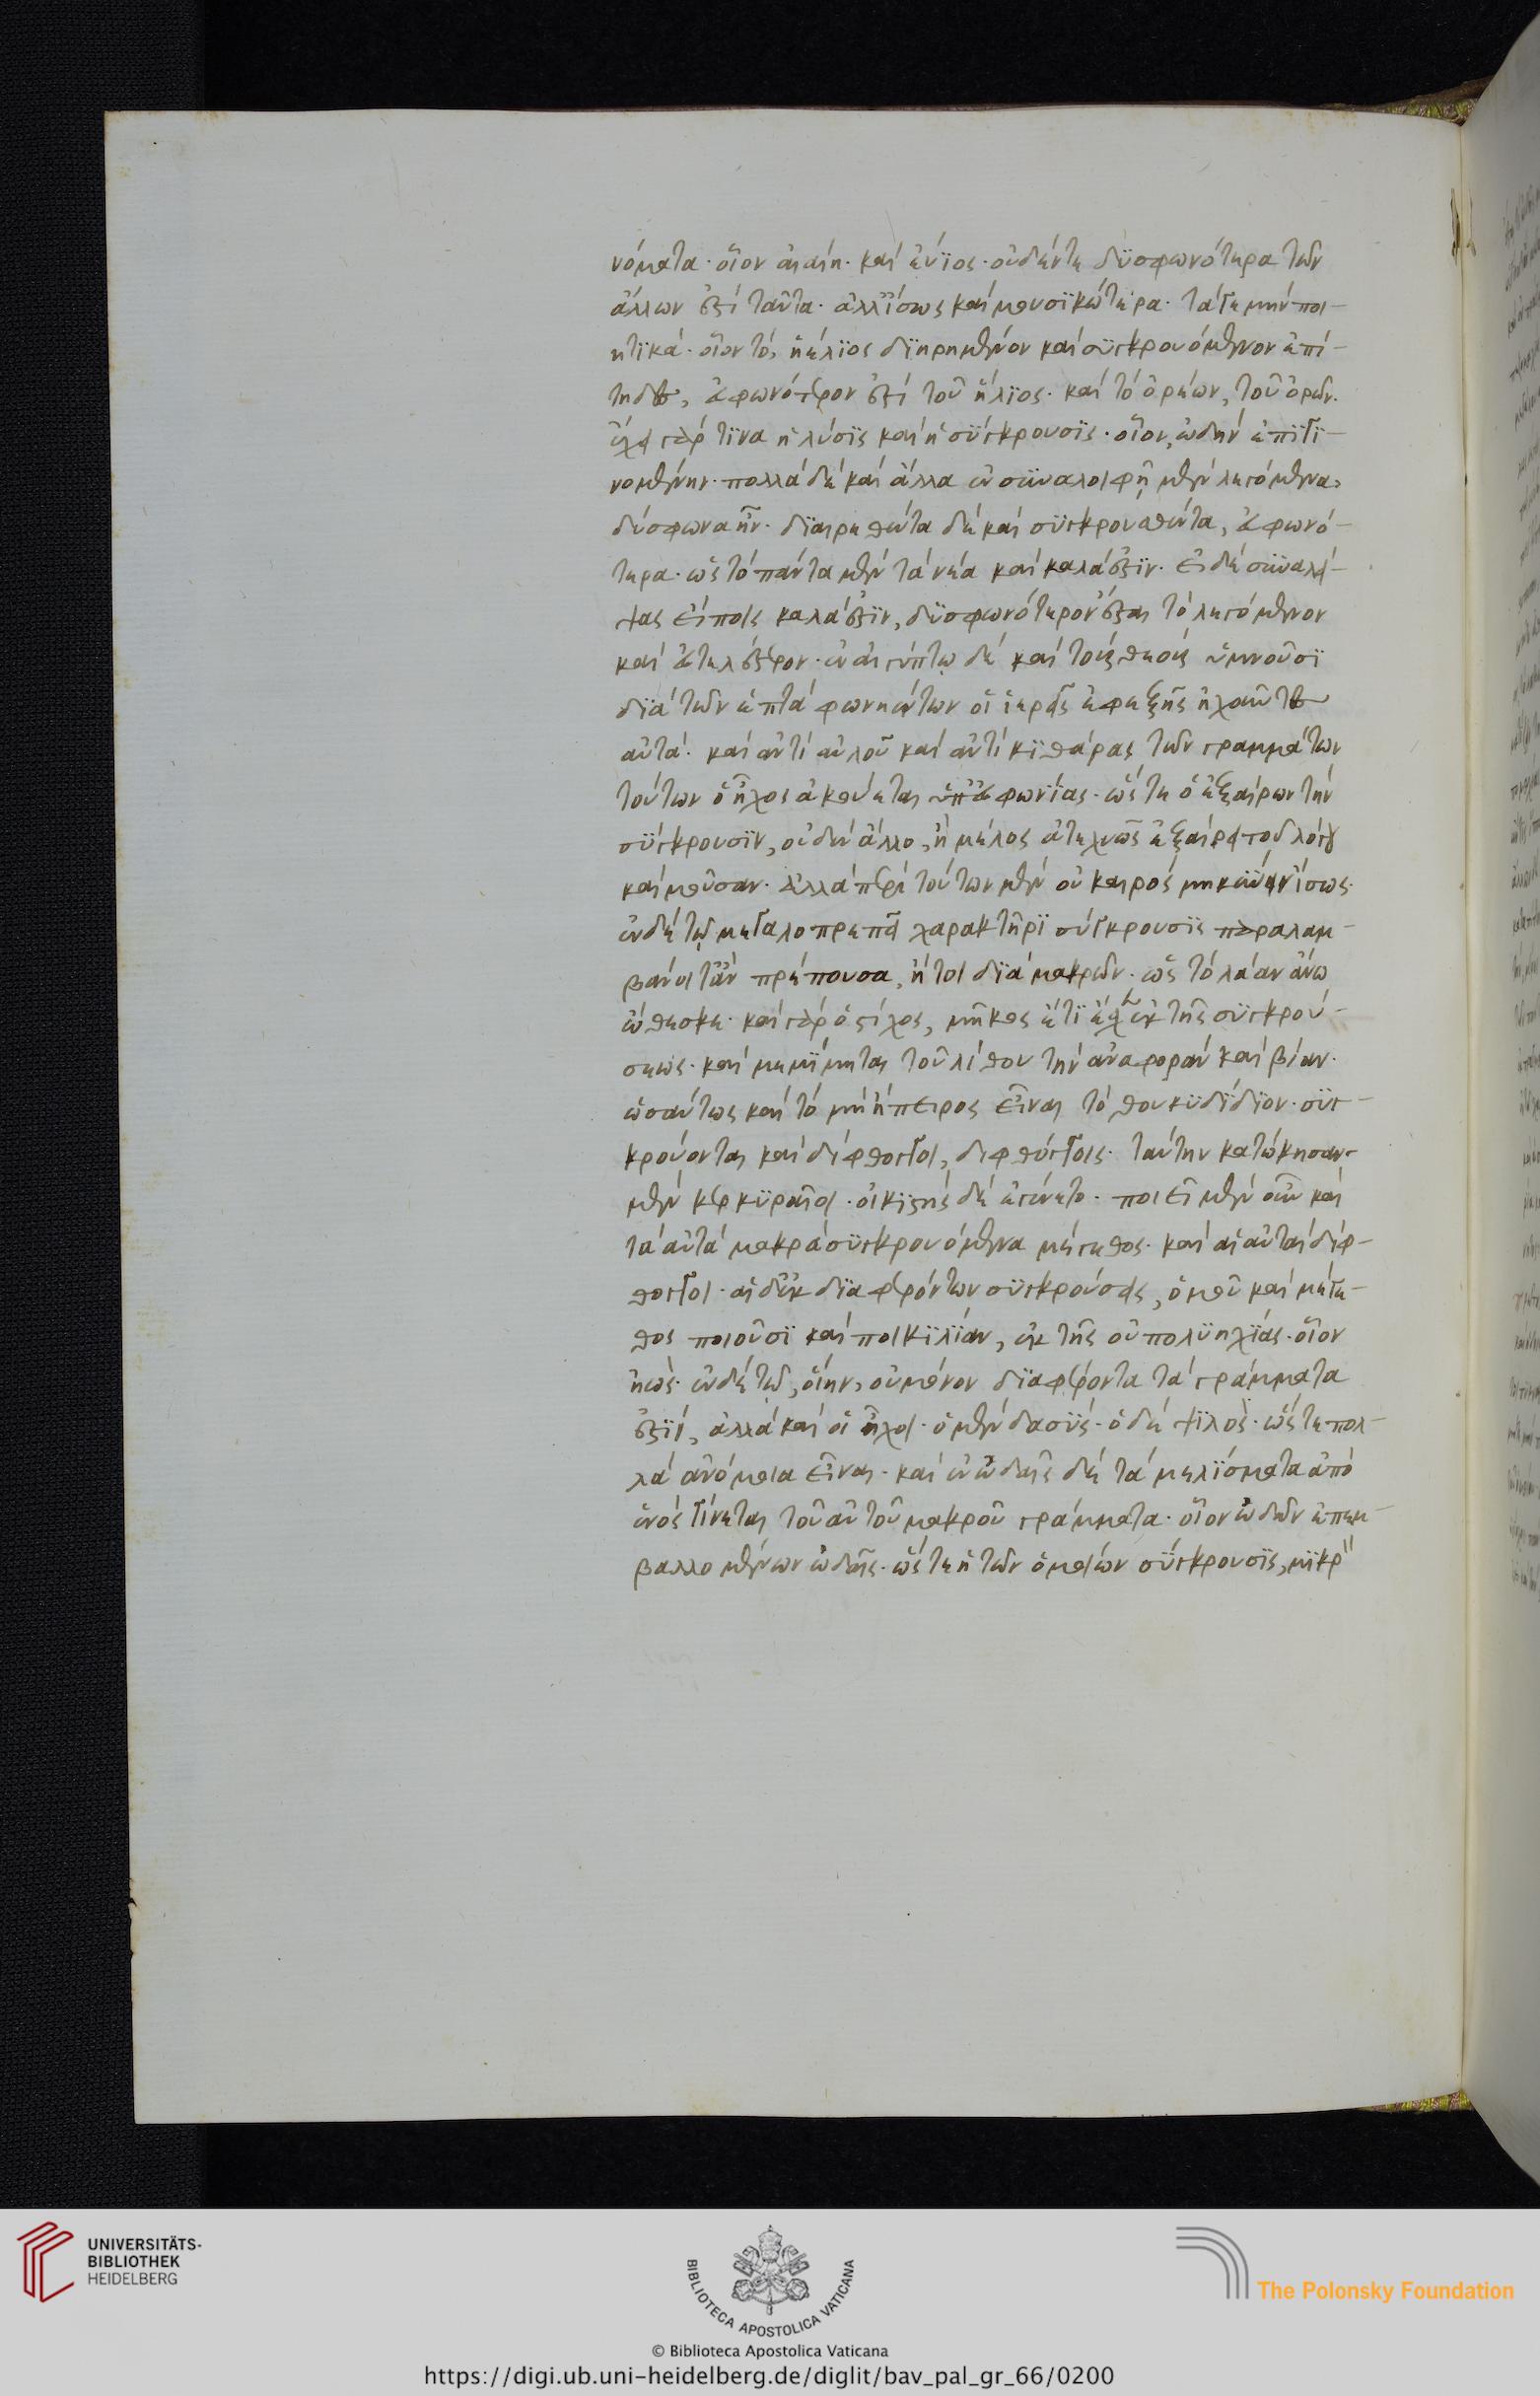 νόματα· οἷον αἰαίη· καὶ εὔϊος· οὐδέν τε δυσφωνότερα τῶν
ἄλλων ἐστὶ ταῦτα· ἀλλ' ἴσως καὶ μουσικώτερα· τά γε μὴν ποι-
ητικά· οἷον τὸ, ἠέλιος διῃρημένον καὶ συγκρουόμενον ἐπί-
τηδες, εὐφωνότερον ἐστὶ τοῦ ἥλιος· καὶ τὸ ὀρέων, τοῦ ὀρῶν.
ἔχει γάρ τινα ἡ λύσις καὶ ἡ σύγκρουσις· οἷον, ᾠδὴν ἐπιγι-
νομένην· πολλὰ δὲ καὶ ἄλλα ἐν συναλοιφῇ μὲν λεγόμενα,
δύσφωνα ἦν· διαιρεθέντα δὲ καὶ συγκρουσθέντα, εὐφωνό-
τερα· ὡς τὸ πάντα μὲν τὰ νέα καὶ καλά ἐστιν· εἰ δὲ συναλεί-
ψας εἴποις καλά ἐστιν, δυσφωνότερον ἔσται τὸ λεγόμενον
καὶ εὐτελέστερον· ἐν αἰγύπτῳ δὲ καὶ τοὺς θεοὺς ὑμνοῦσι
διὰ τῶν ἑπτὰ φωνηέντων οἱ ἱερεῖς ἐφεξῆς ἠχοῦντες
αὐτά· καὶ ἀντὶ αὐλοῦ καὶ ἀντὶ κιθάρας τῶν γραμμάτων
τούτων ὁ ἦχος ἀκούεται ὑπ' εὐφωνίας· ὥστε ὁ ἐξαίρων τὴν
σύγκρουσιν, οὐδὲν ἄλλο, ἢ μέλος ἀτεχνῶς ἐξαίρει τοῦ λόγου
καὶ μοῦσαν· ἀλλὰ περὶ τούτων μὲν οὐ καιρὸς μηκύνειν ἴσως·
ἐν δὲ τῷ μεγαλοπρεπεῖ χαρακτῆρι σύγκρουσις παραλαμ-
βάνοιτ' ἂν πρέπουσα, ἤτοι διὰ μακρῶν· ὡς τὸ λᾶαν ἄνω
ὤθεσκε· καὶ γὰρ ὁ στίχος, μῆκός ἔτι ἔσχεν ἐκ τῆς συγκρού-
σεως· καὶ μεμίμηται τοῦ λίθου τὴν ἀναφορὰν καὶ βίαν·
ὡσαύτως καὶ τὸ μὴ ἤπειρος εἶναι τὸ θουκυδίδιον· συγ-
κρούονται καὶ δίφθογγοι, διφθόγγοις· ταύτην κατῴκησαν
μὲν κερκυραῖοι· οἰκιστὴς δὲ ἐγένετο· ποιεῖ μὲν οὖν καὶ
τὰ αὐτὰ μακρὰ συγκρουόμενα μέγεθος· καὶ αἱ αὐταὶ δίφ-
θογγοι· αἱ δ' ἐκ διαφερόντων συγκρούσεις, ὁμοῦ καὶ μέγε-
θος ποιοῦσι καὶ ποικιλίαν, ἐκ τῆς οὐ πολυηχίας· οἷον
ἠώς· ἐν δὲ τῷ, οἵην, οὐ μόνον διαφέροντα τὰ γράμματα
ἐστιν, ἀλλὰ καὶ οἱ ἦχοι· ὁ μὲν δασύς· ὁ δὲ ψιλός· ὥστε πολ-
λὰ ἀνόμοια εἶναι· καὶ ἐν ᾠδαῖς δὲ τὰ μελίσματα ἀπὸ
ἑνὸς γίνεται τοῦ αὐτοῦ μακροῦ γράμματα· οἷον ᾠδῶν ἐπεμ-
βαλλομένων ᾠδαῖς· ὥστε ἡ τῶν ὁμοίων σύγκρουσις, μικρ
UNIVERSITÄTS-
BIBLIOTHEK
HEIDELBERG
BIBLIOTECA APOSTOLICA VATICANA
The Polonsky Foundation
© Biblioteca Apostolica Vaticana
https://digi.ub.uni-heidelberg.de/diglit/bav_pal_gr_66/0200